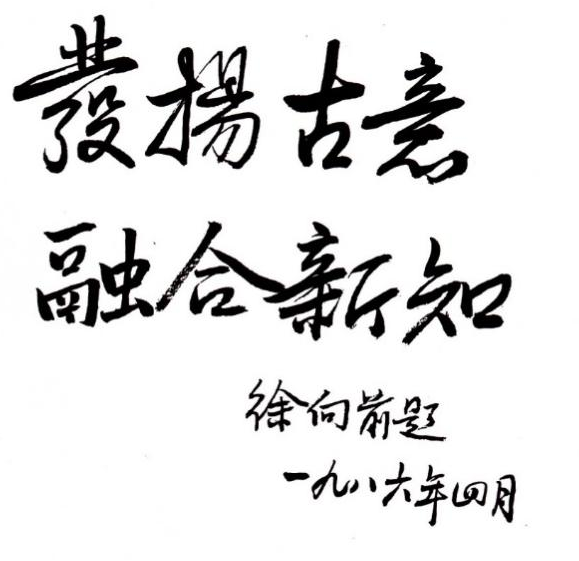 發揚古意
融合新知
徐向前题
一九八六年四月